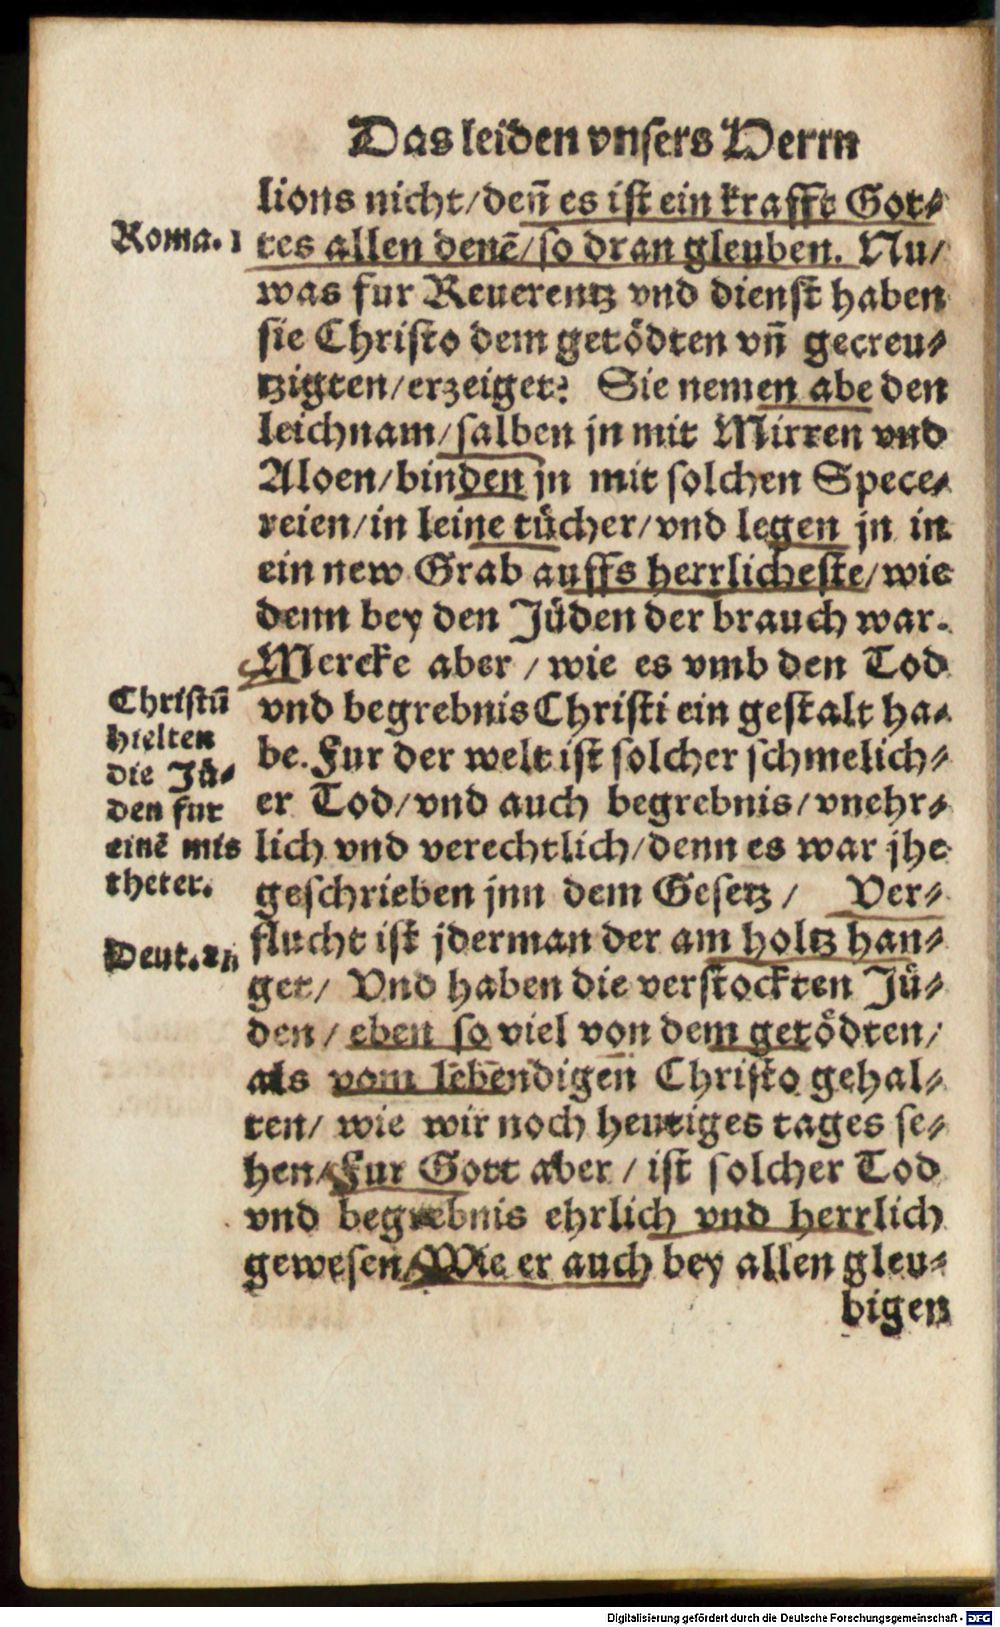 Das leiden vnsers Herrn
lions nicht/ den̄ es ist ein krafft Got⸗
Roma. 1
tes allen denē/ so dran gleuben. Nu/
was fur Reuerentz vnd dienst haben
sie Christo dem getödten vn̄ gecreu⸗
tzigten/ erzeiget? Sie nemen abe den
leichnam/ salben jn mit Mirren vnd
Aloen/ binden jn mit solchen Spece⸗
reien/ in leine tücher/ vnd legen jn in
ein new Grab auffs herrlicheste/ wie
denn bey den Jüden der brauch war.
Mercke aber / wie es vmb den Tod
vnd begrebnis Christi ein gestalt ha⸗
be. Fur der welt ist solcher schmelich⸗
er Tod/ vnd auch begrebnis/ vnehr⸗
lich vnd verechtlich/ denn es war jhe
geschrieben jnn dem Gesetz / Ver⸗
flucht ist jderman der am holtz han⸗
get/ Vnd haben die verstockten Jü⸗
den / eben so viel von dem getödten/
als vom lebendigen Christo gehal⸗
ten/ wie wir noch heutiges tages se⸗
hen/ Fur Gott aber / ist solcher Tod
vnd begrebnis ehrlich vnd herrlich
gewesen/ Wie er auch bey allen gleu⸗
bigen
Christū
hielten
die Jü⸗
den fur
einē mis
theter.
Deut. 21
Digitalisierung gefördert durch die Deutsche Forschungsgemeinschaft - DFG